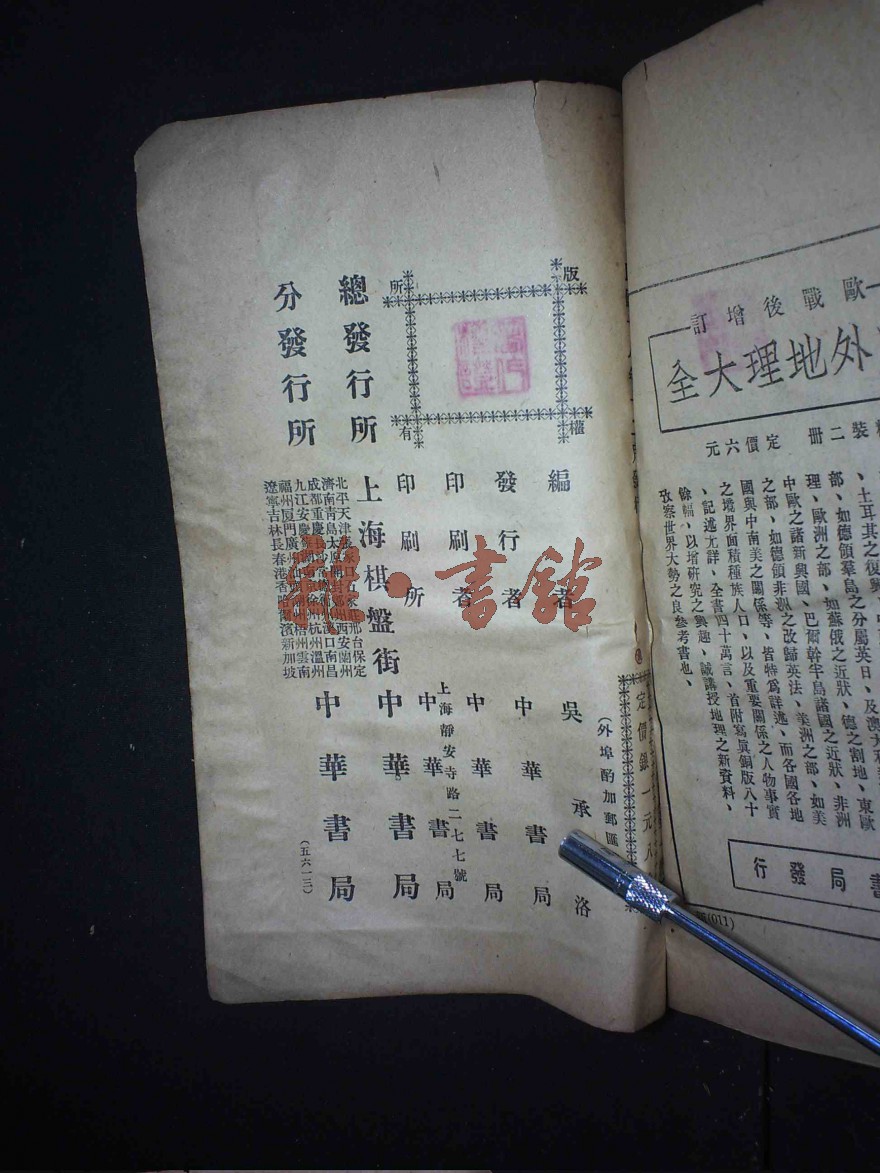 歐戰後增訂
外地理大全
裝二冊 定價六元
、土耳其之復興、
部、如德領羣島之分屬英日、及澳大利
理、歐洲之部、如蘇俄之近狀、德之割地、東歐
中歐之諸新興國、巴爾幹半島諸國之近狀、非洲
之部、如德領非洲之改歸英法、美洲之部、如美
國與中南美之關係等、皆特爲詳述、而各國各地
之境界面積種族人口、以及重要關係之人物事實
、記述尤詳、全書四十萬言、首附寫眞銅版八十
餘幅、以增研究之興趣、誠講授地理之新資料、
攷察世界大勢之良參考書也、
書局發行
(011)
定價銀一元八
(外埠酌加郵匯
版權所有
編 者 吳承洛
發行者 中華書局
印刷者 中華書局
上海靜安寺路二七七號
印刷所 中華書局
總發行所 上海棋盤街 中華書局
分發行所 中華書局
北平天津 邢台保定
濟南青島太原 西安蘭州
成都重慶 漢口南昌
九江安慶蕪湖 徐州杭州溫州
福州厦門廣州 梧州雲南
遼寧吉林長春 濱新加坡
(五六一三)
書館